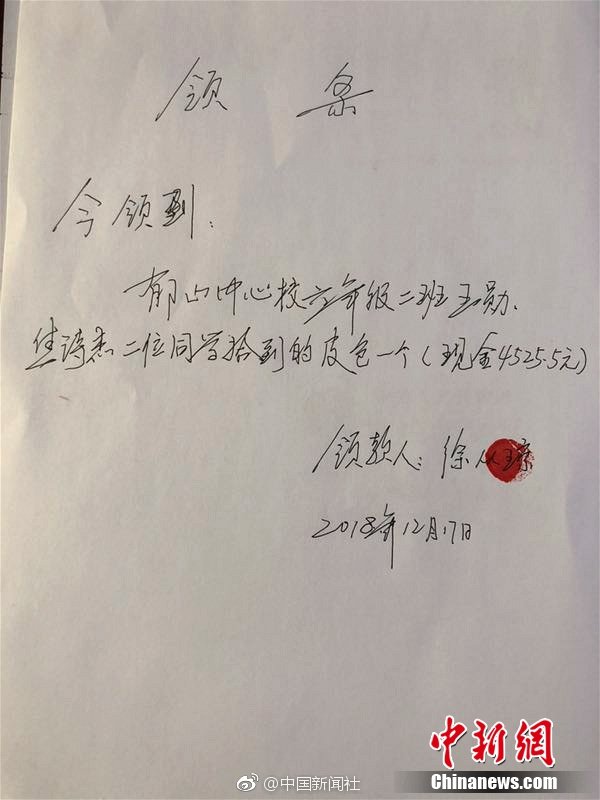 领 条
今领到:
郁山中心校六年级二班王勋、
焦诗杰二位同学拾到的皮包一个(现金4525.5元)
领款人:徐从琼
2018年12月17日
@中国新闻社
中新網
Chinanews.com